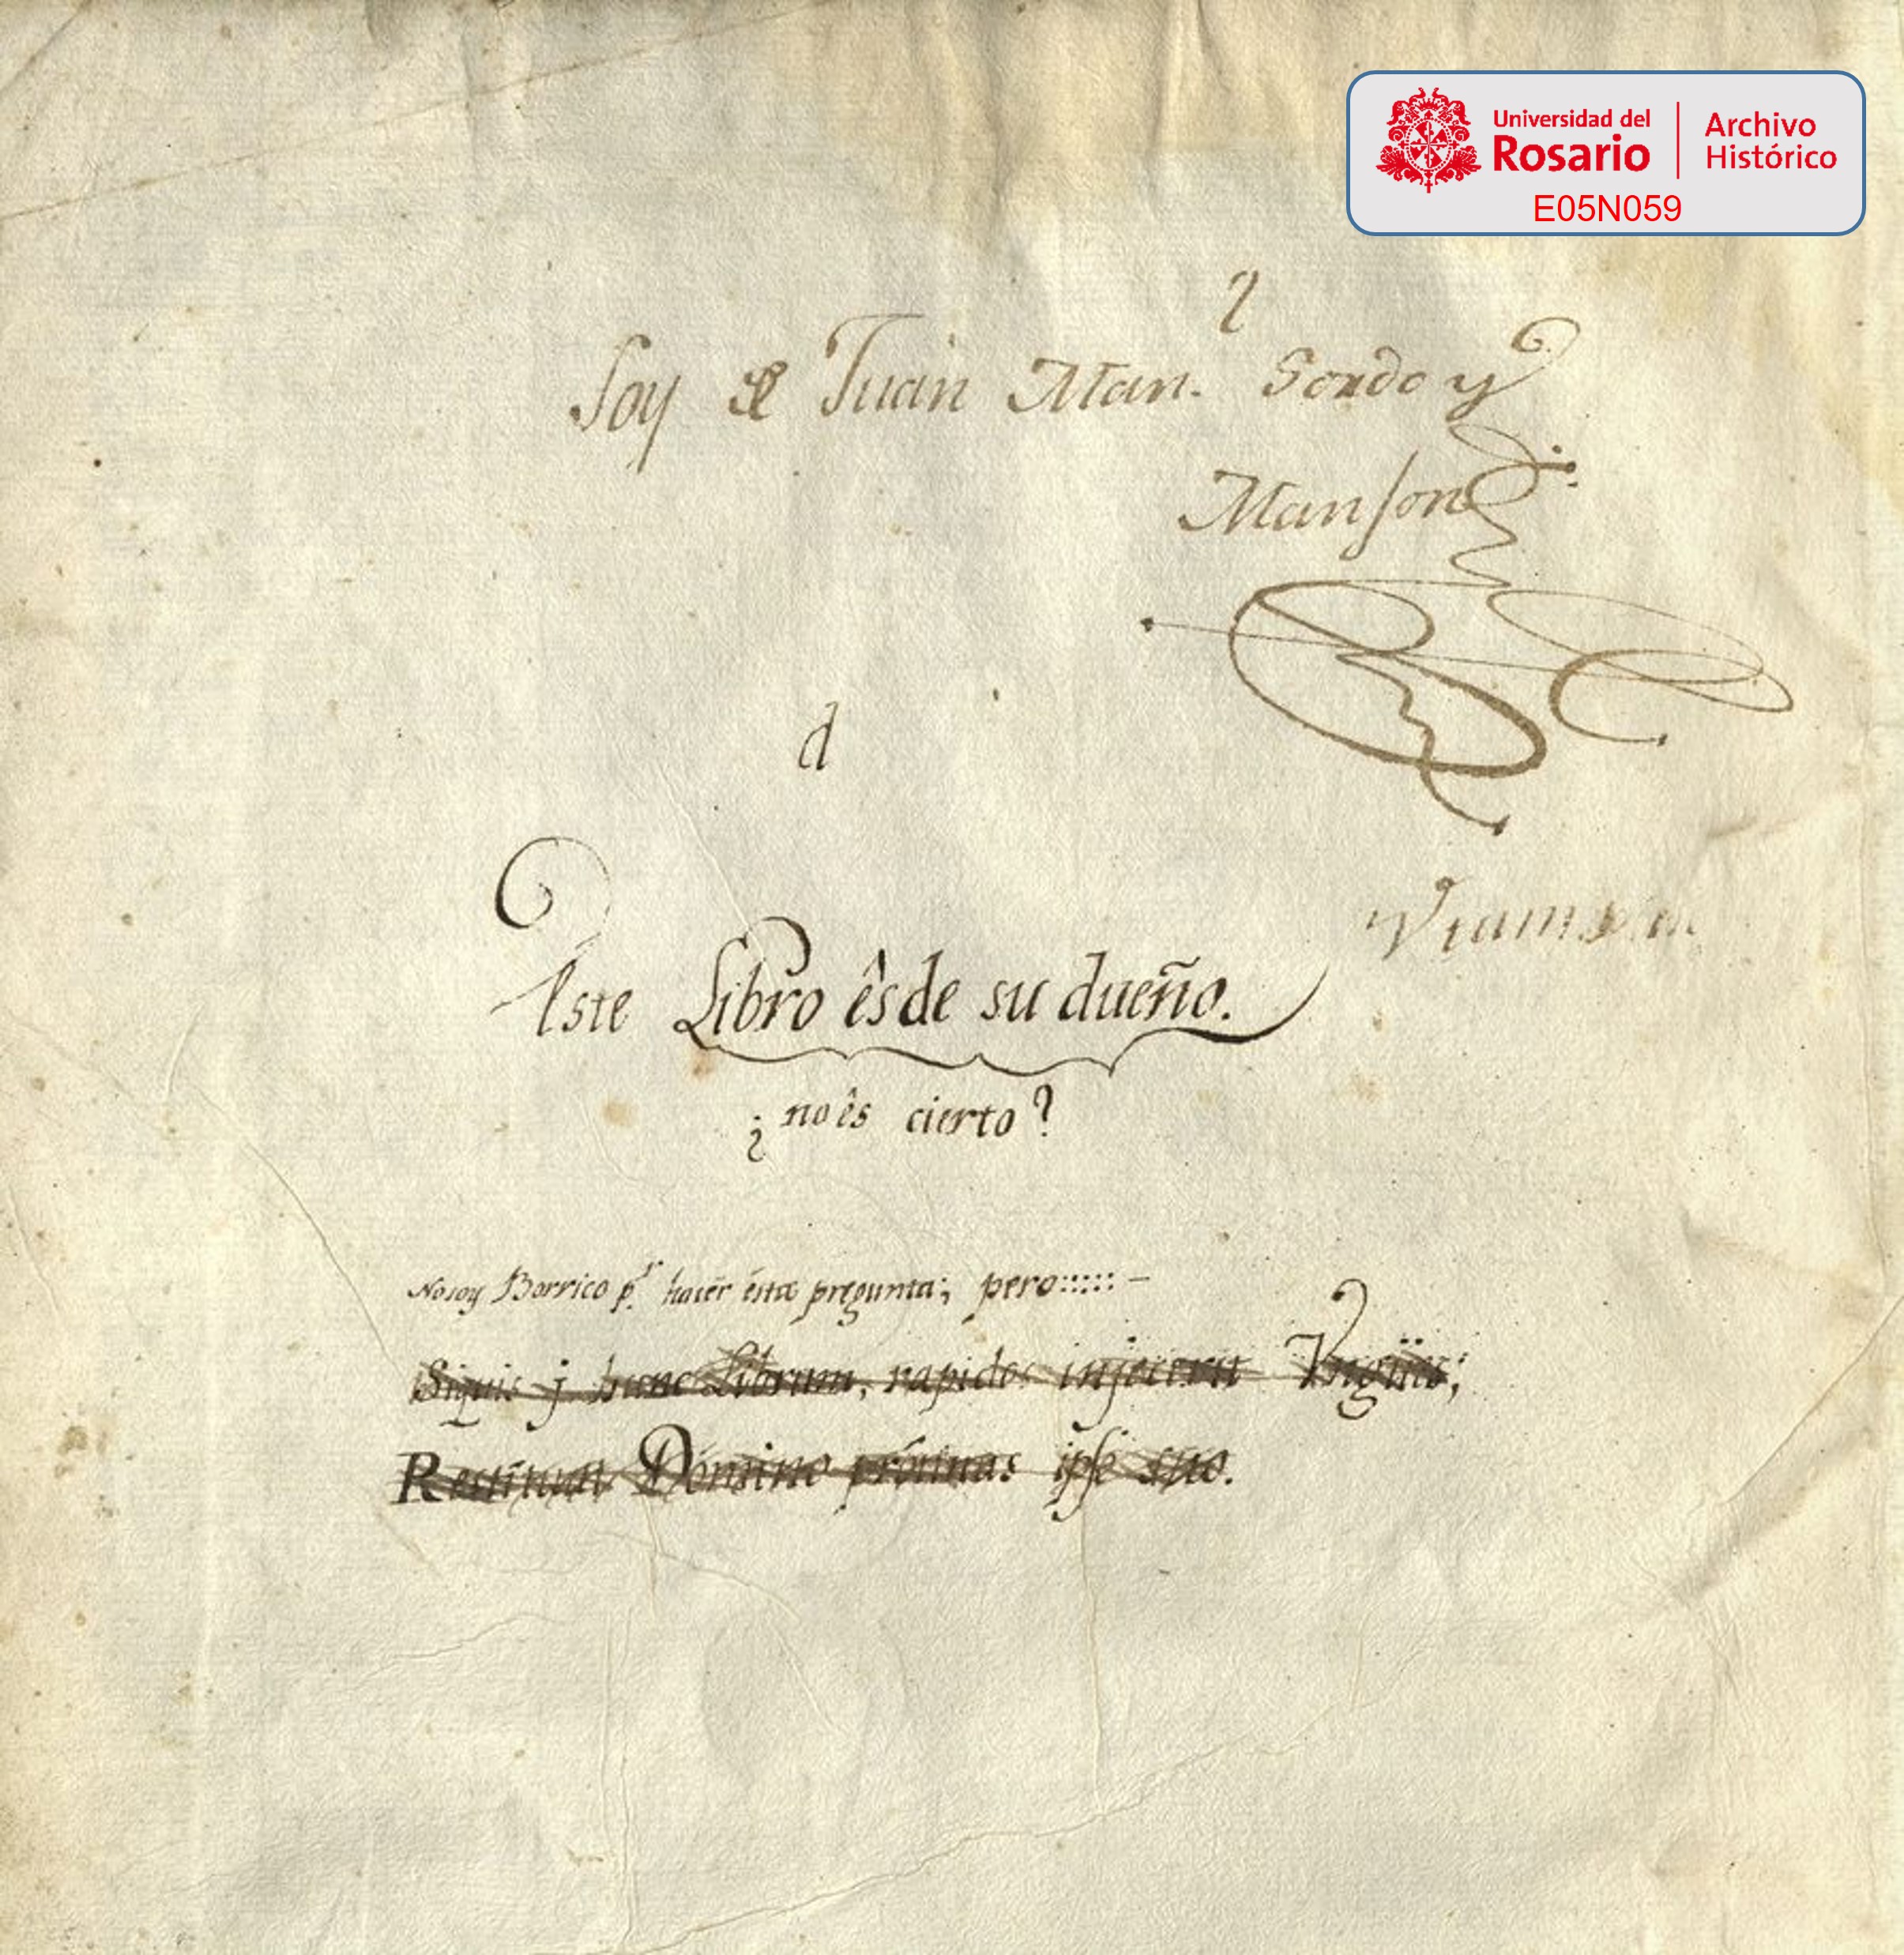 Universidad del
Rosario
Archivo
Histórico
E05N059
Soy de Juan Man. Sordo y
Manson
d
Este Libro ês de su dueño.
¿no ês cierto?
No soy Borrico pr. hacer esta pregunta; pero:::::: —
Siquis j hunc Librum, rapidos injecerit
Restituat Dómino prótinas ipse suo.